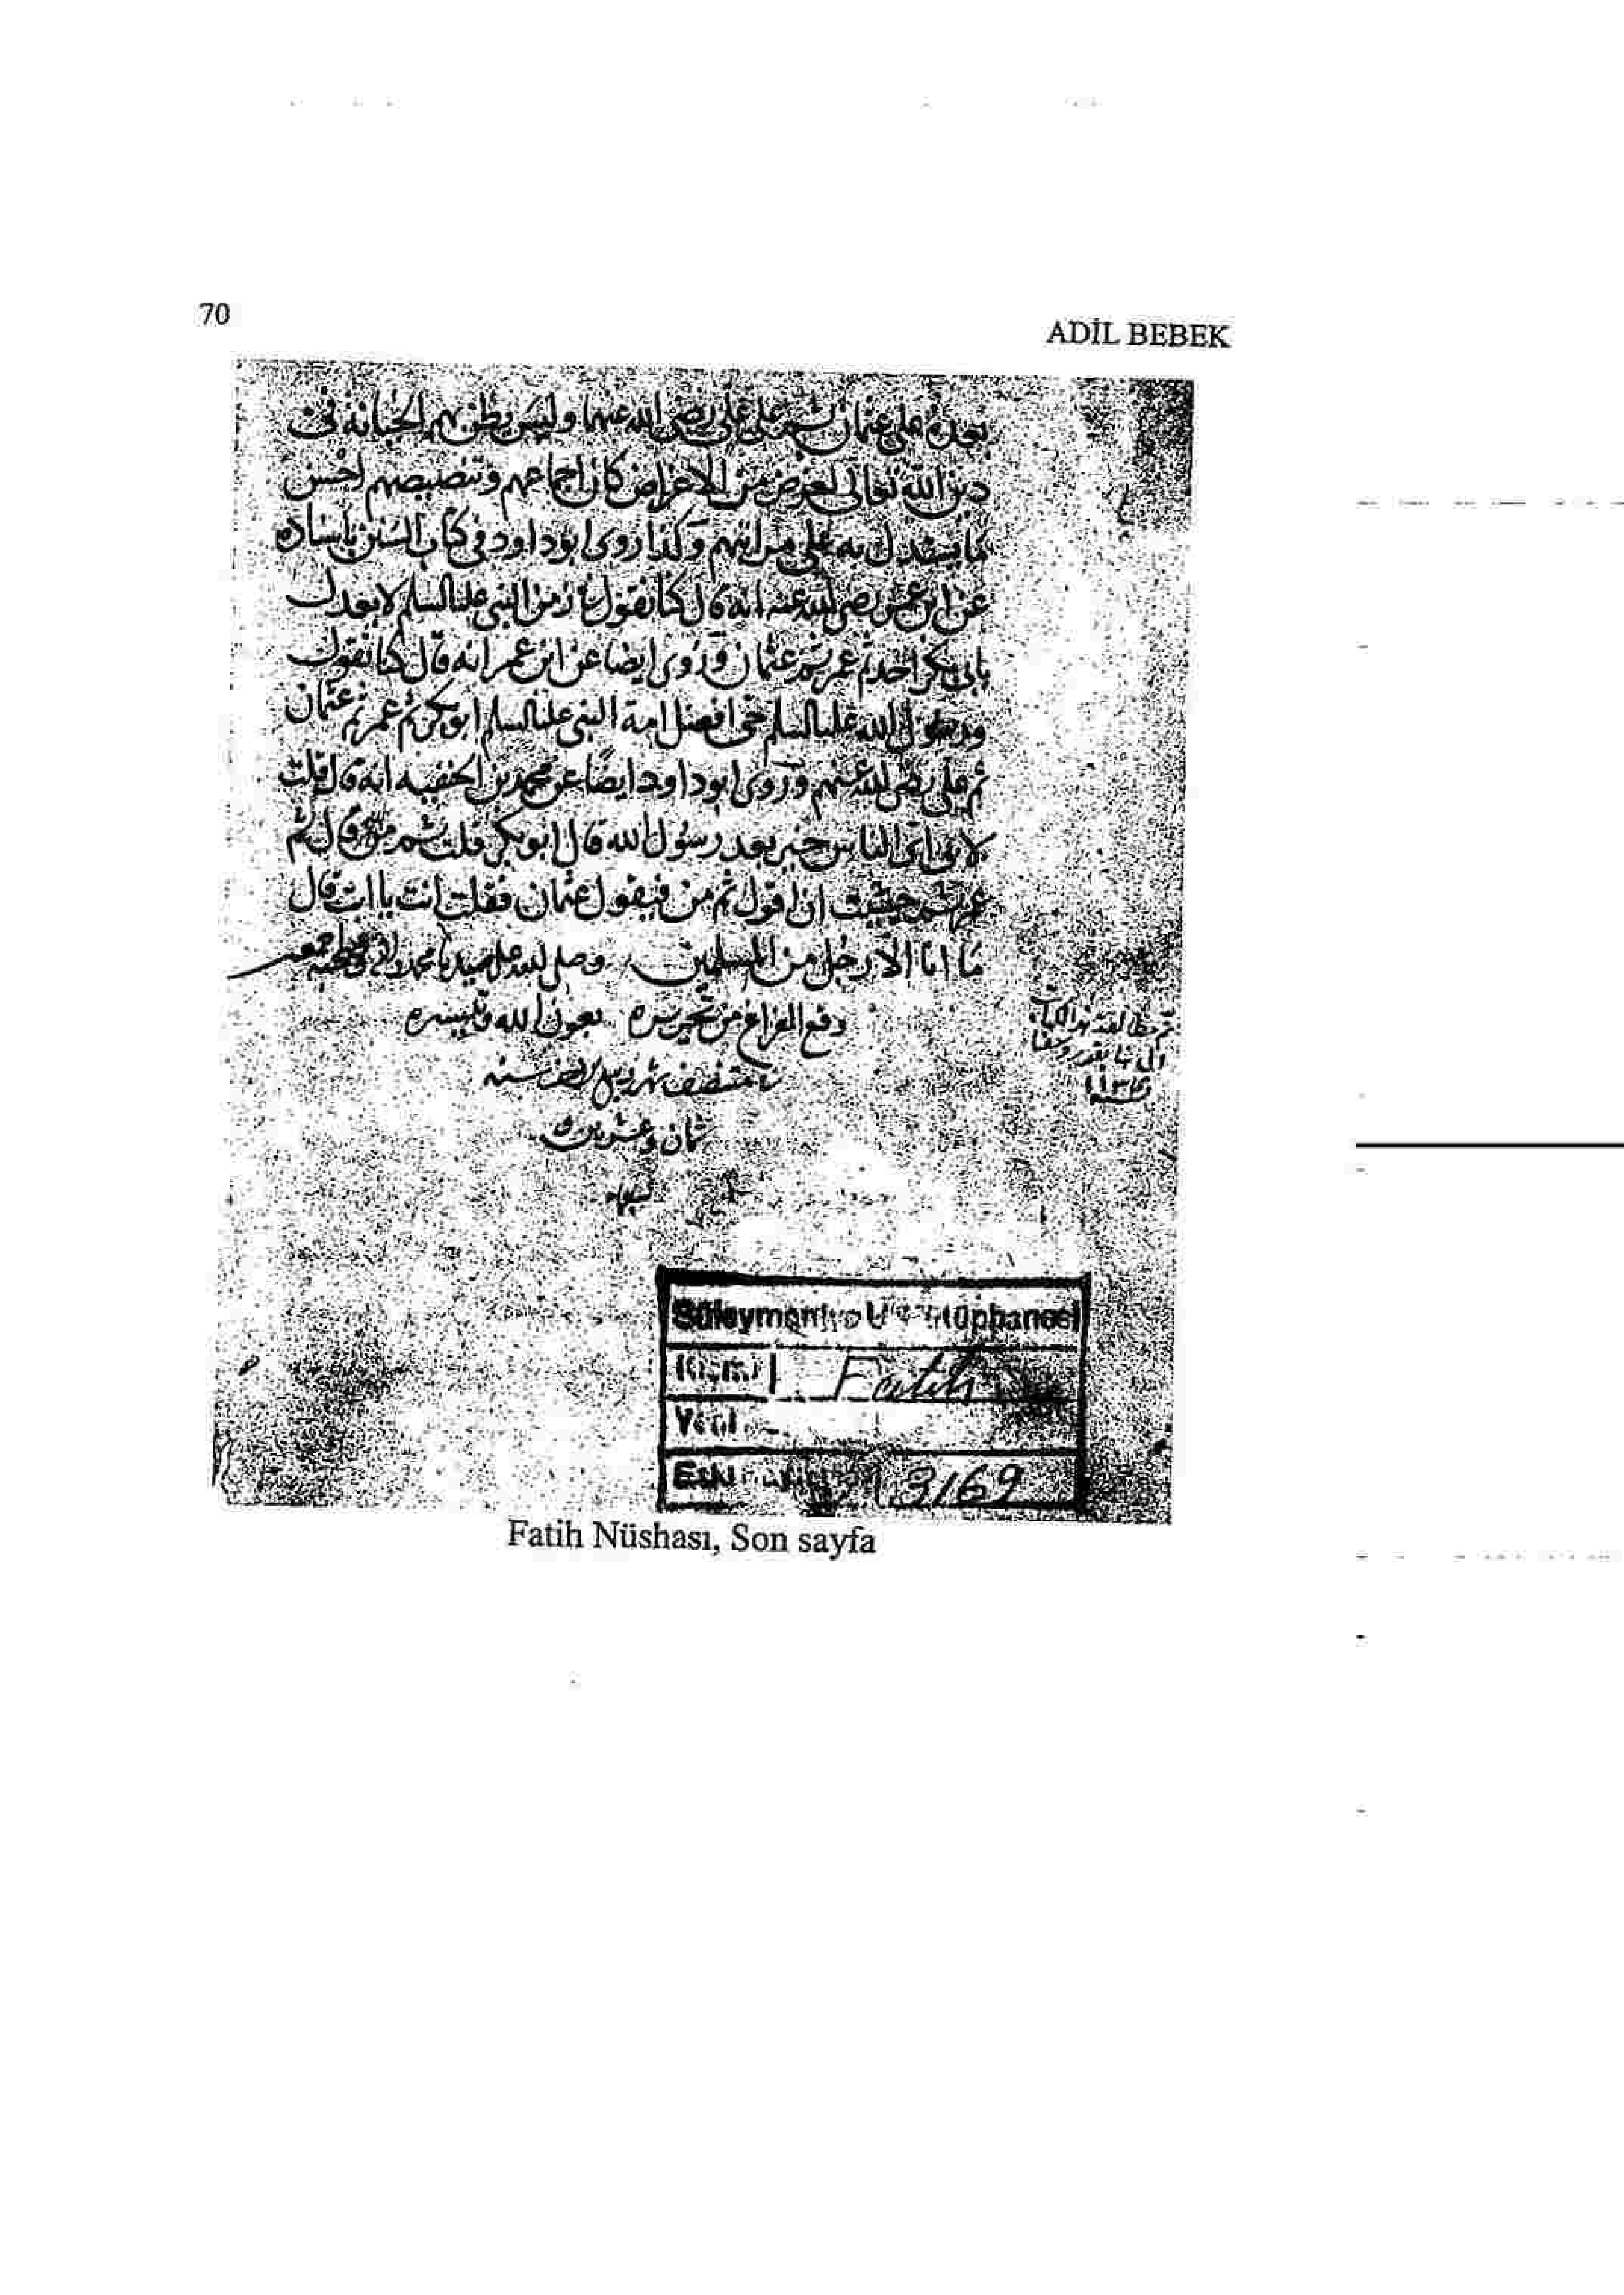 70
ADİL BEBEK
بعده على عثمان ثم على علي رضى الله عنهما وليس يظن بهم الخيانة فى
دين الله تعالى لغرض من الاغراض كان اجماعهم وتنصيصهم احسن
ما يستدل به على مراتبهم وكذا روى ابو داود فى كتاب السنن باسناده
عن ابن عمر رضى الله عنه انه قال كنا نقول فى زمن النبى عليه السلم لا نعدل
بابى بكر احد ثم عمر ثم عثمان وروى ايضا عن ابن عمر انه قال كنا نقول
ورسول الله عليه السلم حى افضل امة النبى عليه السلم ابو بكر ثم عمر ثم عثمان
ثم على رضى الله عنهم وروى ابو داود ايضا عن محمد بن الحنفيه انه قال قلت
لابى اى الناس خير بعد رسول الله قال ابو بكر قلت ثم من قال ثم
عمر ثم خشيت ان اقول ثم من فيقول عثمان فقلت انت يا ابت قال
ما انا الا رجل من المسلمين وصلى الله على سيدنا محمد
وقع الفراغ من تحريره بعون الله وتيسره
شهر ربيع سنه
ثمان وعشرين
Süleymaniye
Fatih
Eski 3169
Fatih Nüshası, Son sayfa